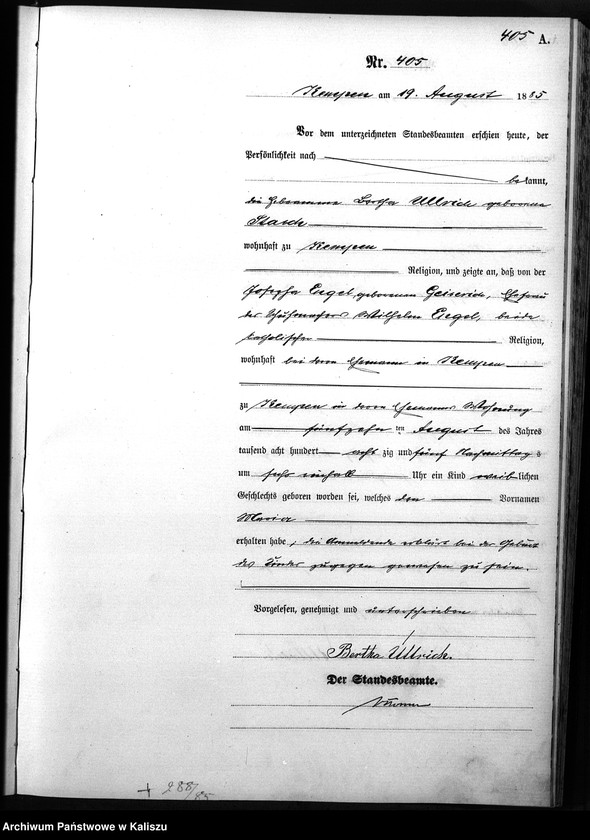 405 A.
Nr. 405
Kempen am 19. August 1885
Vor dem unterzeichneten Standesbeamten erschien heute, der
Persönlichkeit nach
bekannt,
die Hebeamme Bertha Ullrich geborene
Stasch
wohnhaft zu Kempen
Religion, und zeigte an, daß von der
Josepha Engel, geborenen Geiserich, Ehefrau
des Schuhmachers Wilhelm Engel, beide
katholischer Religion,
wohnhaft bei deren Ehemann in Kempen
zu Kempen in deren Ehemannes Wohnung
am fünfzehn ten August des Jahres
tausend acht hundert acht zig und fünf Nachmittags
um sechs einhalb Uhr ein Kind weiblichen
Geschlechts geboren worden sei, welches den Vornamen
Maria
erhalten habe, die Anmeldende erklärt bei der Geburt
des Kindes zugegen gewesen zu sein.
Vorgelesen, genehmigt und unterschrieben
Bertha Ullrich.
Der Standesbeamte.
+ 288/85
Archiwum Państwowe w Kaliszu